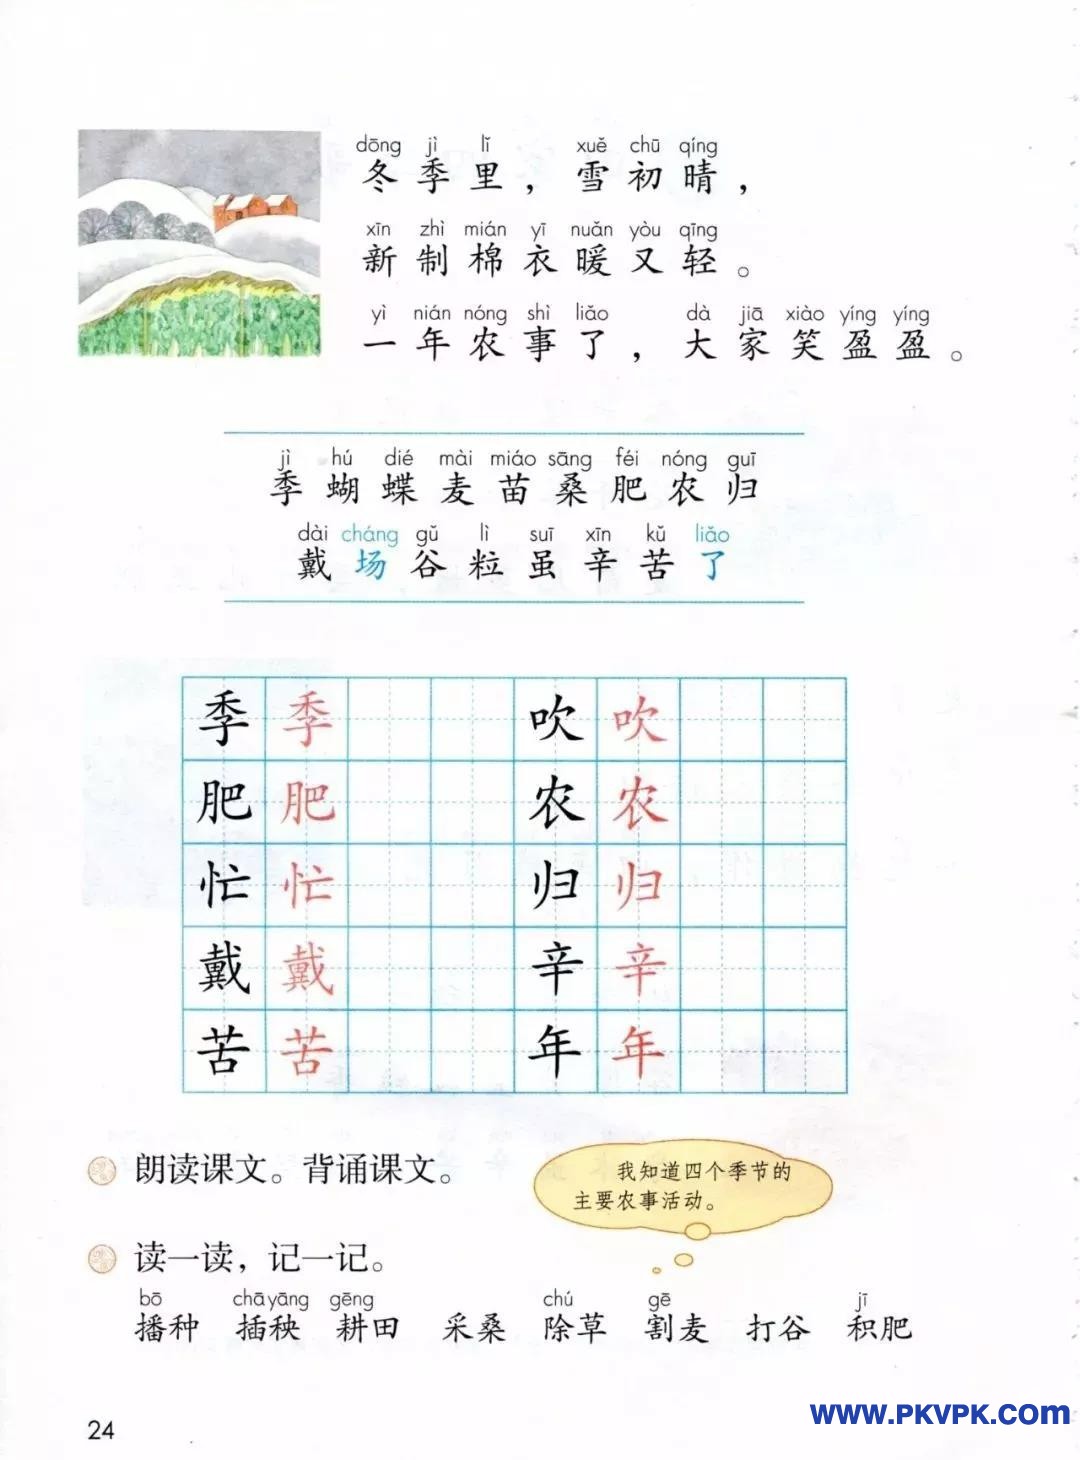 dōng jì lǐ xuě chū qíng
冬季里，雪初晴，
xīn zhì mián yī nuǎn yòu qīng
新制棉衣暖又轻。
yì nián nóng shì liǎo dà jiā xiào yíng yíng
一年农事了，大家笑盈盈。
jì hú dié mài miáo sāng féi nóng guī
季蝴蝶麦苗桑肥农归
dài cháng gǔ lì suī xīn kǔ liǎo
戴场谷粒虽辛苦了
季 季 吹 吹
肥 肥 农 农
忙 忙 归 归
戴 戴 辛 辛
苦 苦 年 年
朗读课文。背诵课文。
我知道四个季节的
主要农事活动。
读一读，记一记。
bō chāyāng gēng chú gē jī
播种 插秧 耕田 采桑 除草 割麦 打谷 积肥
24
www.PKVPK.com